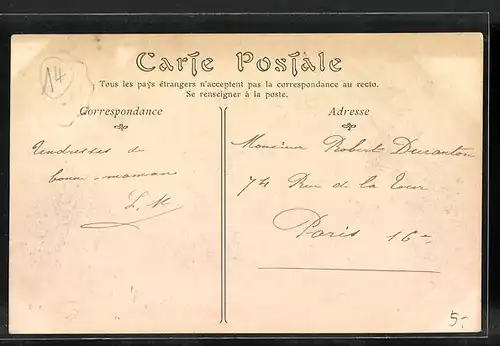 14
Carte Postale
Tous les pays étrangers n'acceptent pas la correspondance au recto.
Se renseigner à la poste.
Correspondance
Tendresses de
bonne-maman
L. M
Adresse
Monsieur Robert Duranton
74 Rue de la Tour
Paris 16e
5.-